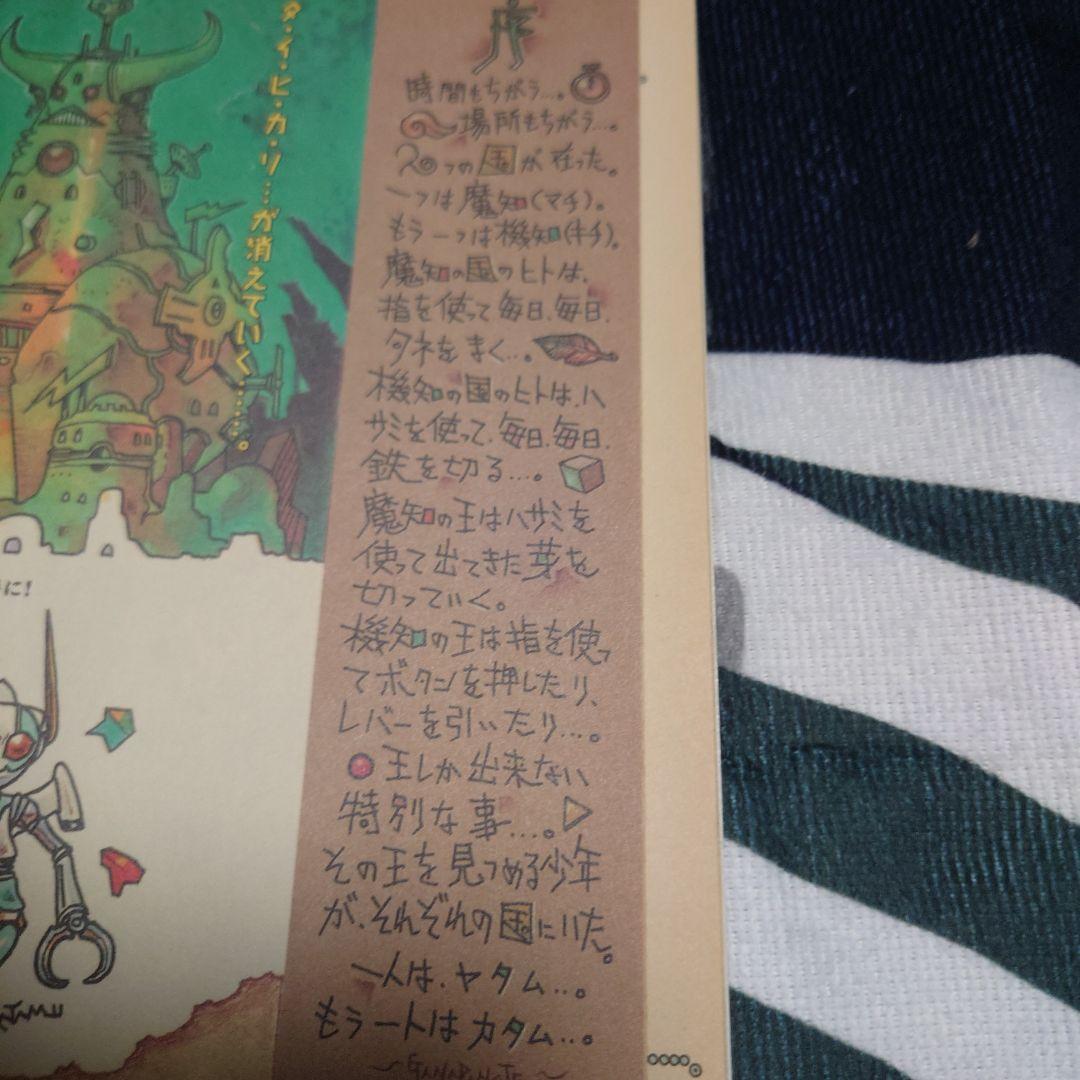 タ・イ・ヒ・カ・リ…が消えていく……。
序
時間もちがう…。
場所もちがう…。
2つの国が在った。
一つは魔知(マチ)。
もう一つは機知(キチ)。
魔知の国のヒトは、
指を使って毎日、毎日、
タネをまく…。
機知の国のヒトは、ハ
サミを使って、毎日、毎日、
鉄を切る…。
魔知の王はハサミを
使って出てきた芽を
切っていく。
機知の王は指を使っ
てボタンを押したり、
レバーを引いたり…。
王しか出来ない
特別な事…。
その王を見つめる少年
が、それぞれの国にいた。
一人は、ヤタム…。
もう一人はカタム…。
に!